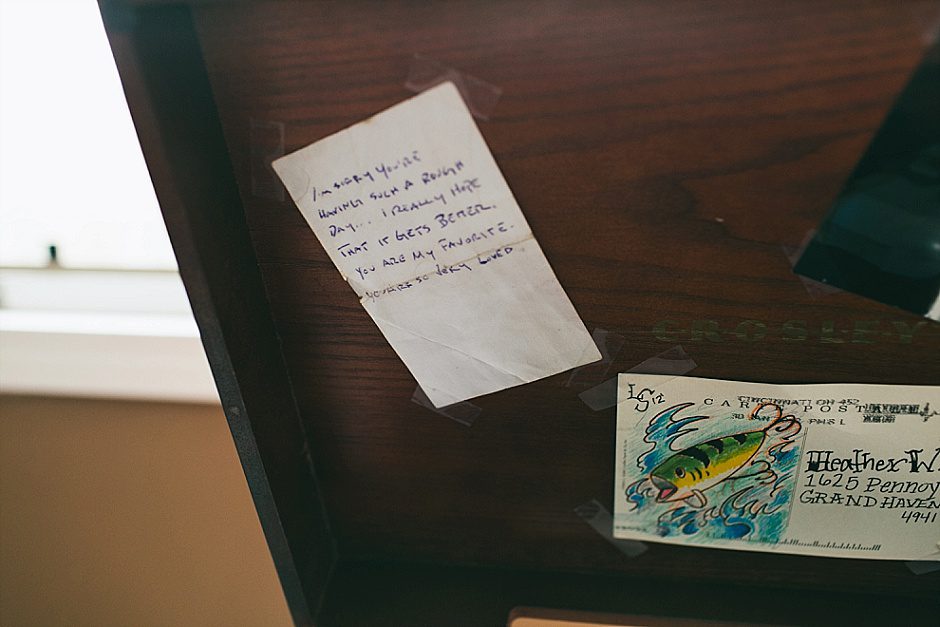 I'm sorry you're
having such a rough
day... I really hope
that it gets better.
You are my favorite.
You're so very loved.
CROSLEY
LS12
CINCINNATI OH 452
CAR POST
30
PM 5 L
Heather W.
1625 Pennoy
GRAND HAVEN
4941